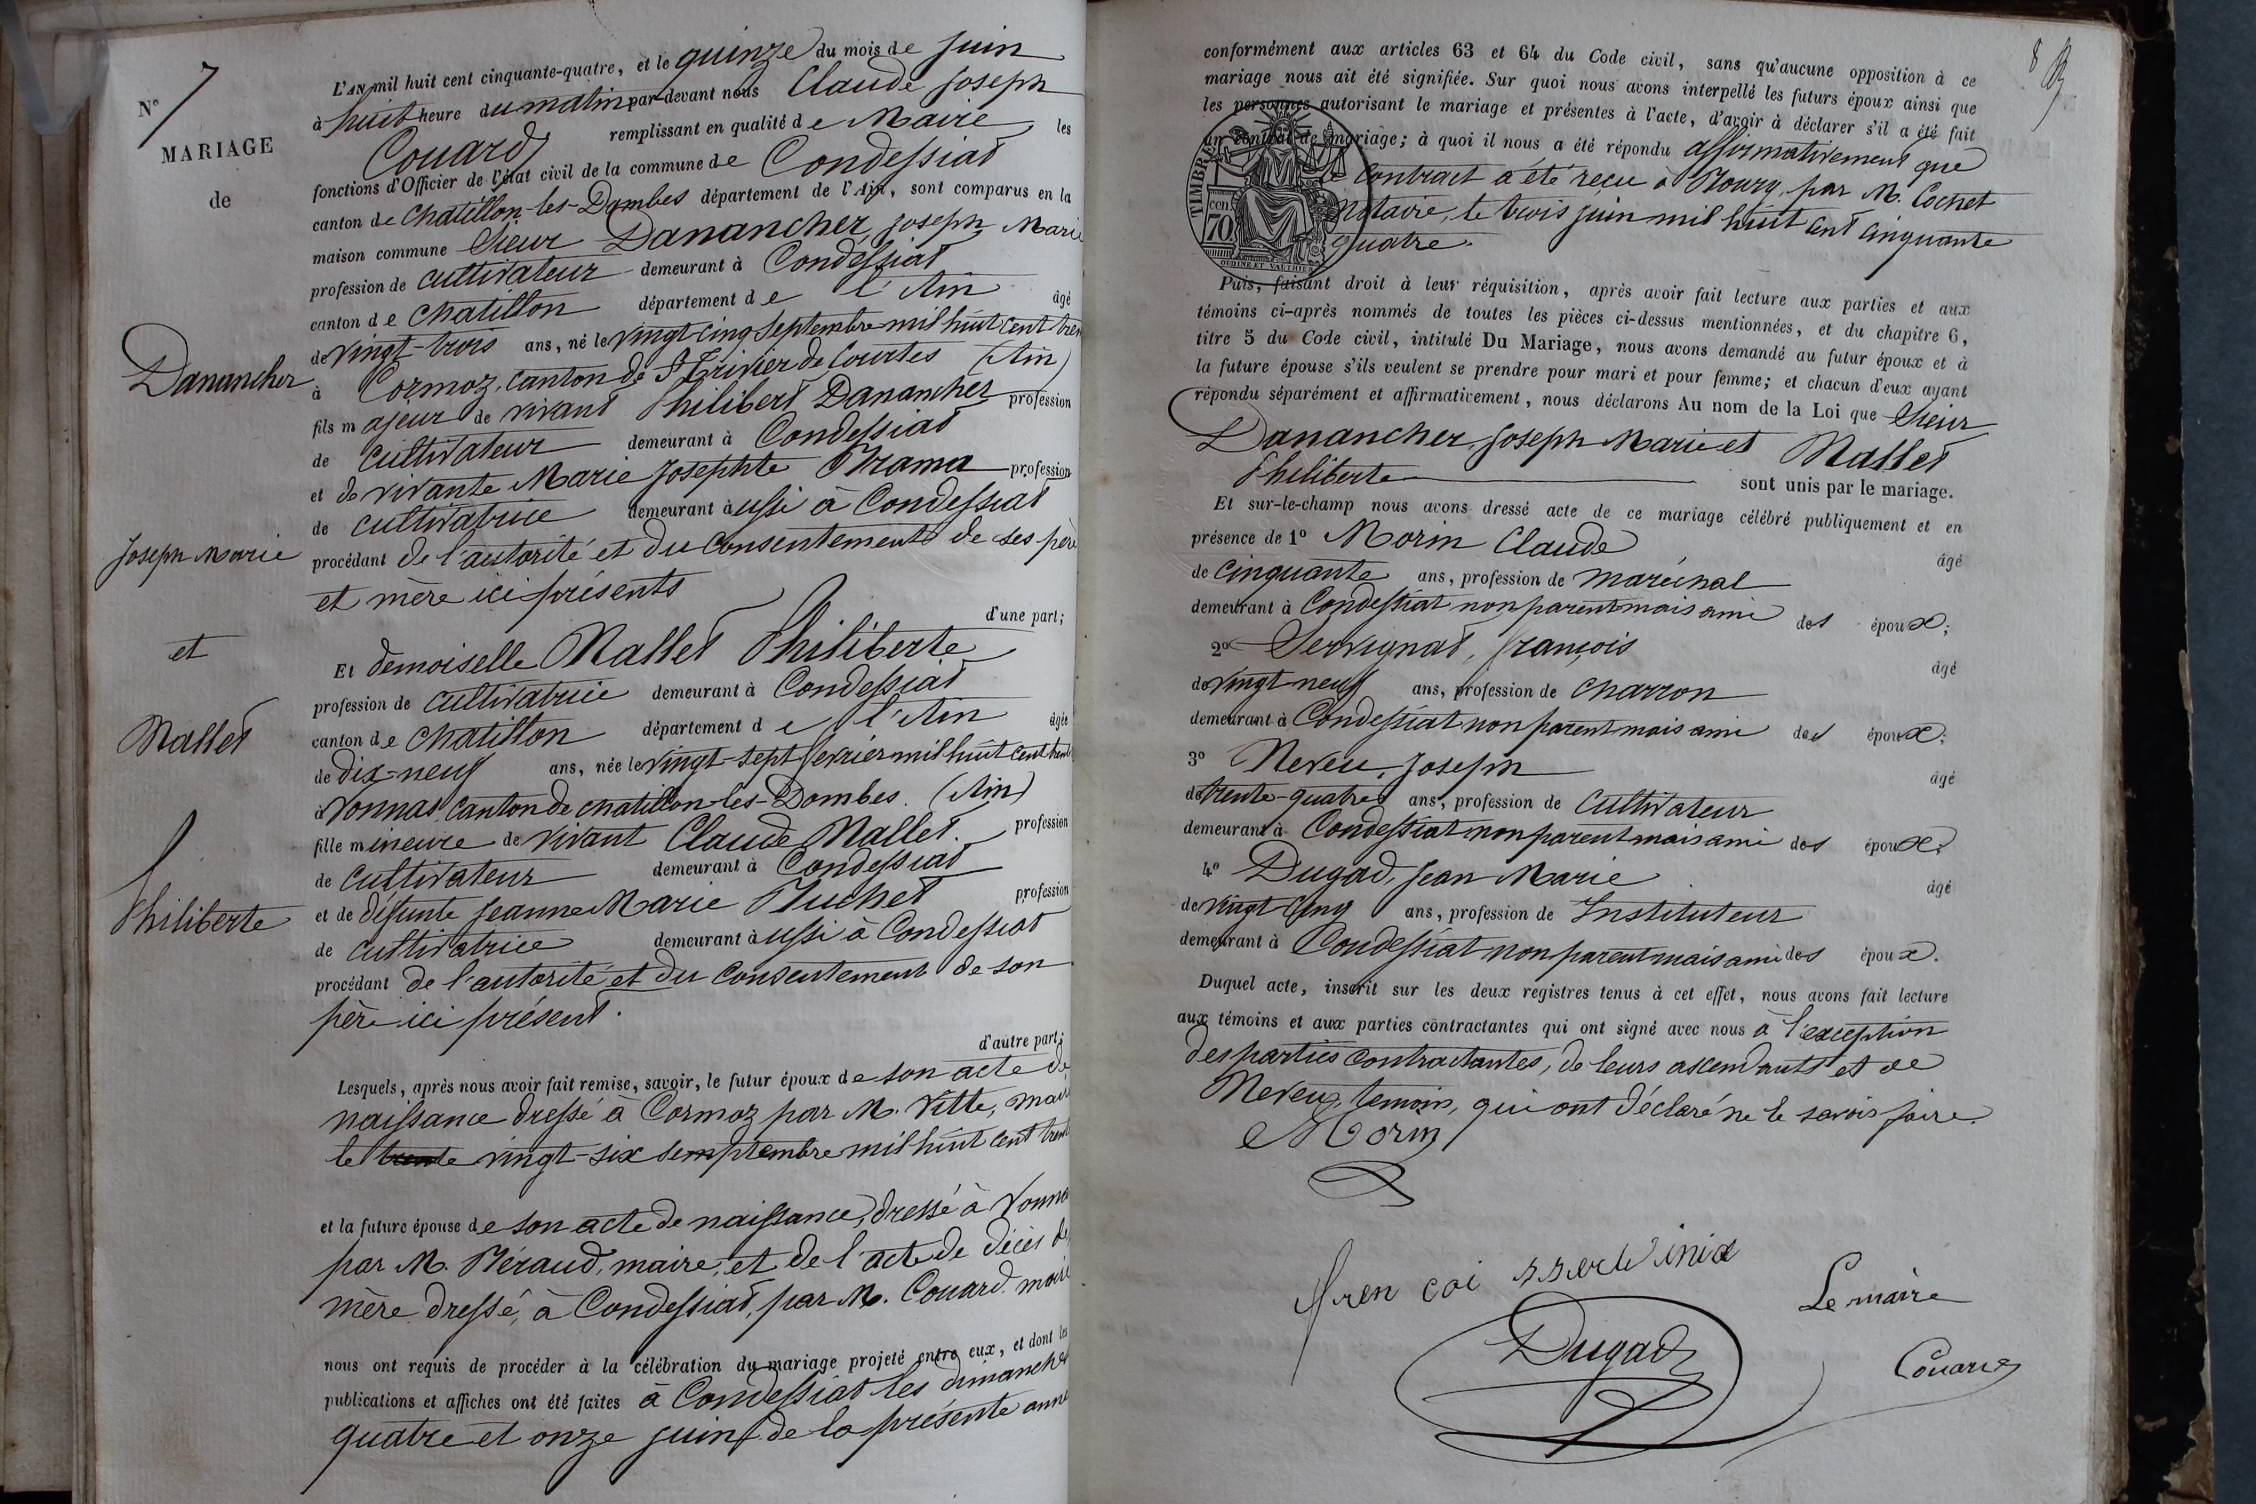 N° 7
MARIAGE
de
Danancher
Joseph Marie
et
Mallet
Philiberte
L'AN mil huit cent cinquante-quatre, et le quinze du mois de juin
à huit heure du matin par-devant nous Claude Joseph
Couard remplissant en qualité de Maire les
fonctions d'Officier de l'état civil de la commune de Condessiat
canton de Chatillon-les-Dombes département de l'Ain, sont comparus en la
maison commune Sieur Danancher, Joseph Marie
profession de cultivateur demeurant à Condessiat
canton de Chatillon département de l'Ain âgé
de vingt-trois ans, né le vingt-cinq septembre mil huit cent tren
à Cormoz, canton de St Trivier de Courtes (Ain)
fils majeur de vivant Philibert Danancher profession
de cultivateur demeurant à Condessiat
et de vivante Marie Josephte Prama profession
de cultivatrice demeurant aussi à Condessiat
procédant de l'autorité et du consentement de ses père
et mère ici présents
d'une part;
Et demoiselle Mallet Philiberte
profession de cultivatrice demeurant à Condessiat
canton de Chatillon département de l'Ain âgée
de dix-neuf ans, née le vingt-sept février mil huit cent trent
à Vonnas, canton de Chatillon-les-Dombes. (Ain)
fille mineure de vivant Claude Mallet. profession
de cultivateur demeurant à Condessiat
et de défunte Jeanne Marie Puchet profession
de cultivatrice demeurant aussi à Condessiat
procédant de l'autorité et du consentement de son
père ici présent.
d'autre part;
Lesquels, après nous avoir fait remise, savoir, le futur époux de son acte de
naissance dressé à Cormoz par M. Vitte, maire
le trente vingt-six semptembre mil huit cent trente
et la future épouse de son acte de naissance, dressé à Vonna
par M. Péraud, maire, et de l'acte de décès de
mère dressé, à Condessiat, par M. Couard maire
nous ont requis de procéder à la célébration du mariage projeté entre eux, et dont les
publications et affiches ont été faites à Condessiat les dimanches
quatre et onze juin de la présente anné
8
conformément aux articles 63 et 64 du Code civil, sans qu'aucune opposition à ce
mariage nous ait été signifiée. Sur quoi nous avons interpellé les futurs époux ainsi que
les personnes autorisant le mariage et présentes à l'acte, d'avoir à déclarer s'il a été fait
un contrat de mariage; à quoi il nous a été répondu affirmativement que
le contract a été reçu à Bourg, par M. Cochet
Notaire, le trois juin mil huit cent cinquante
quatre.
TIMBRE
CEN
70
OUDINE ET VAUTHIER
Puis, faisant droit à leur réquisition, après avoir fait lecture aux parties et aux
témoins ci-après nommés de toutes les pièces ci-dessus mentionnées, et du chapitre 6,
titre 5 du Code civil, intitulé Du Mariage, nous avons demandé au futur époux et à
la future épouse s'ils veulent se prendre pour mari et pour femme; et chacun d'eux ayant
répondu séparément et affirmativement, nous déclarons Au nom de la Loi que Sieur
Danancher, Joseph Marie et Mallet
Philiberte sont unis par le mariage.
Et sur-le-champ nous avons dressé acte de ce mariage célébré publiquement et en
présence de 1° Morin Claude âgé
de cinquante ans, profession de maréchal
demeurant à Condessiat non parent mais ami des époux;
2° Servignat, François âgé
de vingt-neuf ans, profession de charron
demeurant à Condessiat non parent mais ami des époux;
3° Neveu, Joseph âgé
de trente-quatre ans, profession de cultivateur
demeurant à Condessiat non parent mais ami des époux;
4° Dugad, Jean Marie âgé
de vingt-cinq ans, profession de Instituteur
demeurant à Condessiat non parent mais ami des époux.
Duquel acte, inscrit sur les deux registres tenus à cet effet, nous avons fait lecture
aux témoins et aux parties contractantes qui ont signé avec nous à l'exception
des parties contractantes, de leurs ascendants et de
Neveu, temoin, qui ont déclaré ne le savoir faire.
Morin
fren coi
Dugad
Le maire
Couard